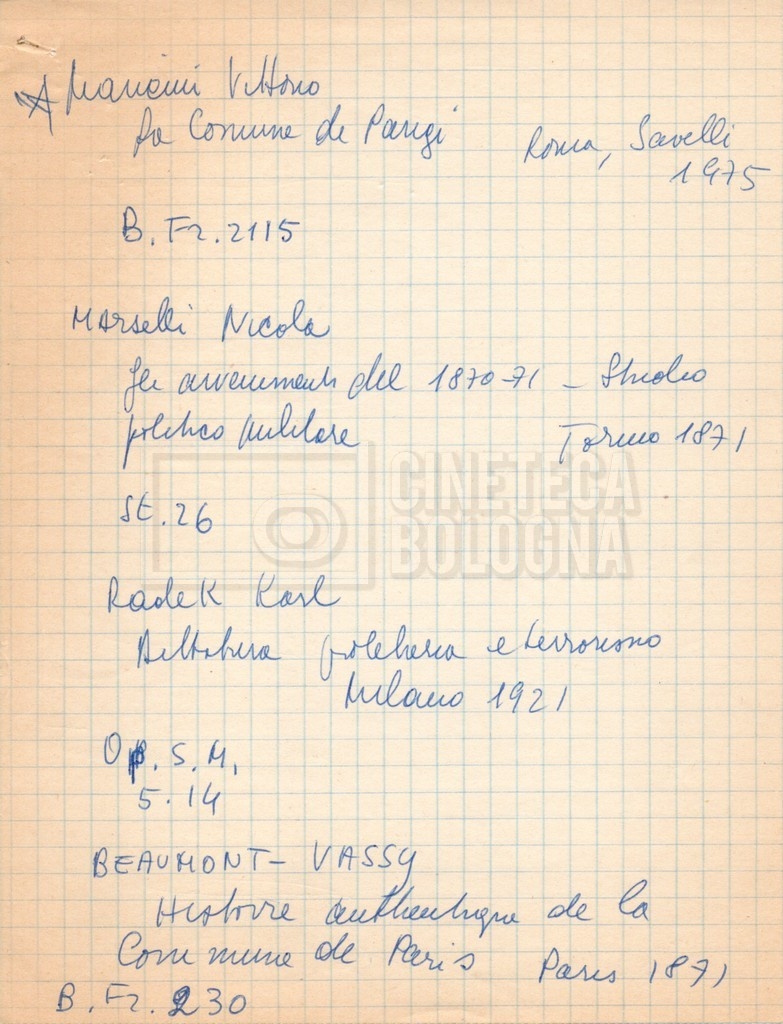 Mancini Vittorio
La Comune di Parigi
Roma, Savelli
1975
B. Fr. 2115
Marselli Nicola
Gli avvenimenti del 1870-71 - Studio
politico militare
Torino 1871
St. 26
CINETECA
BOLOGNA
Radek Karl
Dittatura proletaria e terrorismo
Milano 1921
Op. S. M.
5.14
BEAUMONT-VASSY
Histoire authentique de la
Commune de Paris
Paris 1871
B. Fr. 230